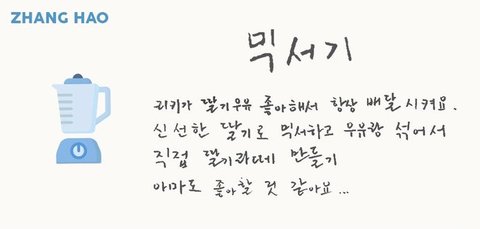 ZHANG HAO
믹서기
리키가 딸기우유 좋아해서 항상 배달 시켜요.
신선한 딸기로 믹서하고 우유랑 섞어서
직접 딸기라떼 만들기
아마도 좋아할 것 같아요...